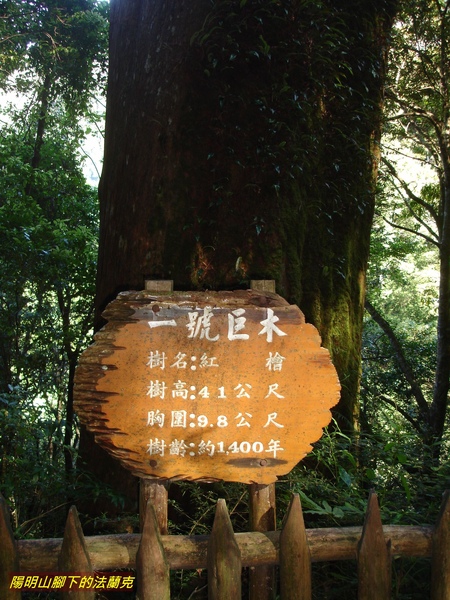 一號巨木
樹名:紅 檜
樹高:41公尺
胸圍:9.8公尺
樹齡:約1,400年
陽明山腳下的法蘭克